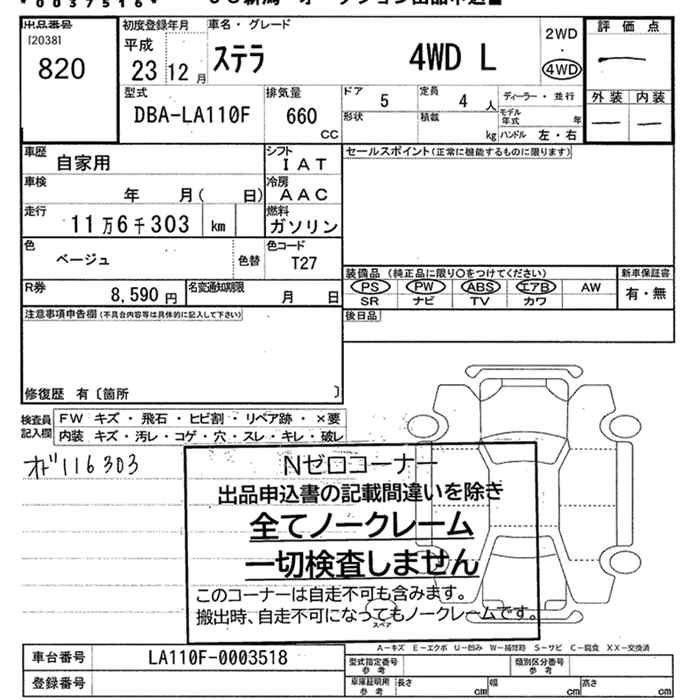 *0037516*
出品番号
[2038]
820
初度登録年月
平成
23 12 月
車名・グレード
ステラ 4WD L
2WD
・
4WD
評価点
ー
外装 内装
ー ー
型式
DBA-LA110F
排気量
660
CC
ドア
5
定員
4 人
ディーラー・並行
形状
積載
kg
モデル年式 年
ハンドル 左・右
車歴
自家用
シフト
IAT
セールスポイント(正常に機能するものに限ります)
車検
年 月( 日)
冷房
AAC
走行
11万6千303 km
燃料
ガソリン
色
ベージュ
色替
色コード
T27
R券
8,590 円
名変通知期限
月 日
装備品 (純正品に限り○をつけてください)
PS PW ABS エアB AW
SR ナビ TV カワ
新車保証書
有・無
注意事項申告欄(不具合内容等は具体的に記入して下さい)
後日品
修復歴 有〔箇所 〕
検査員記入欄
FW キズ・飛石・ヒビ割・リペア跡・×要
内装 キズ・汚レ・コゲ・穴・スレ・キレ・破レ
オド116303
Nゼロコーナー
出品申込書の記載間違いを除き
全てノークレーム
一切検査しません
このコーナーは自走不可も含みます。
搬出時、自走不可になってもノークレームです。
スペア
A-キズ E-エクボ U-凹み W-補修跡 S-サビ C-腐食 XX-交換済
車台番号
LA110F-0003518
登録番号
型式指定番号
参考
類別区分番号
参考
車庫証明用
参考
長さ cm 幅 cm 高さ cm